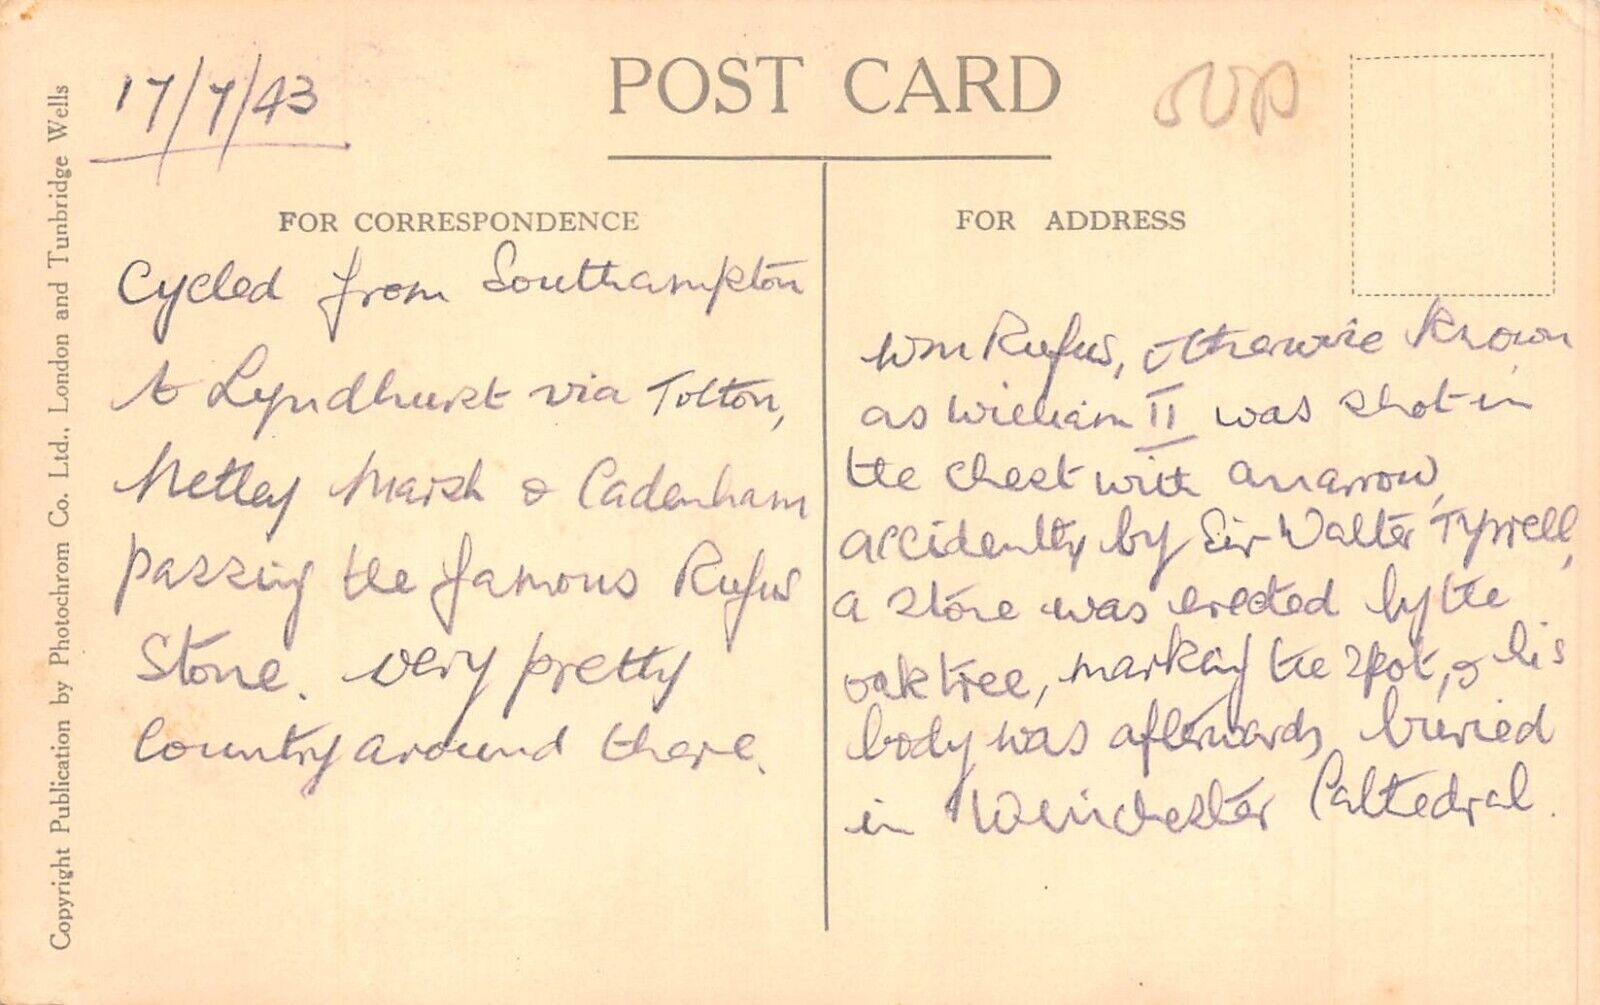 Copyright Publication by Photochrom Co. Ltd., London and Tunbridge Wells
17/7/43
POST CARD
FOR CORRESPONDENCE
Cycled from Southampton
to Lyndhurst via Totton,
Netley Marsh & Cadenham
passing the famous Rufus
Stone. Very pretty
Country around there.
FOR ADDRESS
Wm Rufus, otherwise known
as William II was shot in
the chest with an arrow,
accidently by Sir Walter Tyrrell,
a stone was erected by the
oak tree, marking the spot, & his
body was afterwards buried
in Winchester Cathedral.